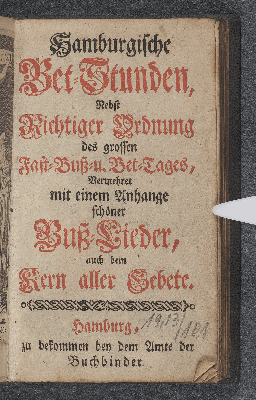 Hamburgische
Bet-Stunden,
Nebst
Richtiger Ordnung
des grossen
Fast-Buß-u. Bet-Tages,
Vermehret
mit einem Anhange
schöner
Buß-Lieder,
auch dem
Kern aller Gebete.
Hamburg,
zu bekommen bey dem Amte der
Buchbinder.